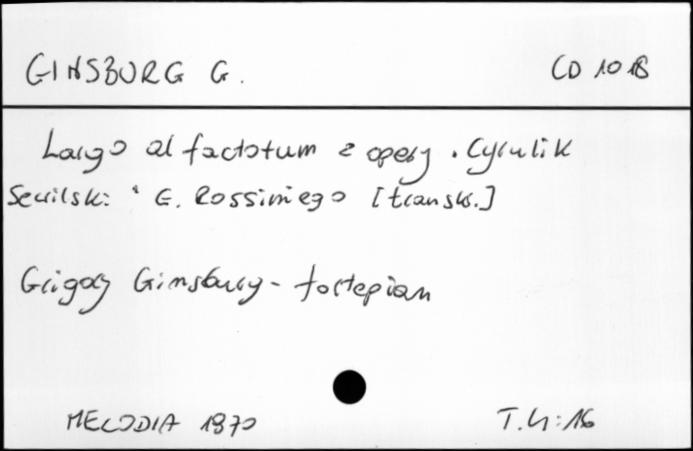 GINSBURG G. CD 1018
Largo al factotum z opery "Cyrulik
Sewilski" G. Rossiniego [transk.]
Grigory Ginsburg - fortepian
MELODIA 1970 T. 4:16